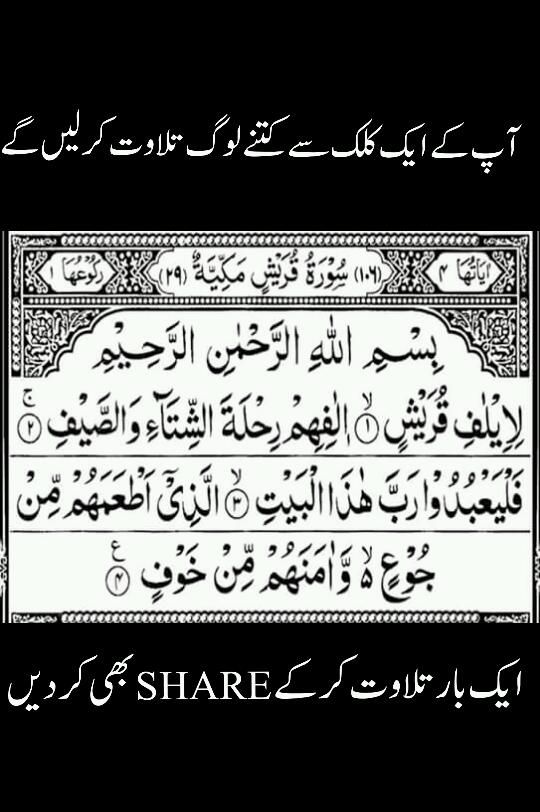 آپ کے ایک کلک سے کتنے لوگ تلاوت کرلیں گے
اٰیَاتُهَا ۴ (۱۰۶) سُوْرَةُ قُرَیْشٍ مَکِّیَّةٌ (۲۹) رُکُوْعُهَا ۱
بِسْمِ اللّٰهِ الرَّحْمٰنِ الرَّحِیْمِ
لِاِیْلٰفِ قُرَیْشٍ ۙ﴿۱﴾ اٖلٰفِهِمْ رِحْلَةَ الشِّتَآءِ وَالصَّیْفِ ۚ﴿۲﴾
فَلْیَعْبُدُوْا رَبَّ هٰذَا الْبَیْتِ ۙ﴿۳﴾ الَّذِیْۤ اَطْعَمَهُمْ مِّنْ
جُوْعٍ ۙ۬ وَّاٰمَنَهُمْ مِّنْ خَوْفٍ ﴿۴﴾ ع
ایک بار تلاوت کر کے SHARE بھی کر دیں